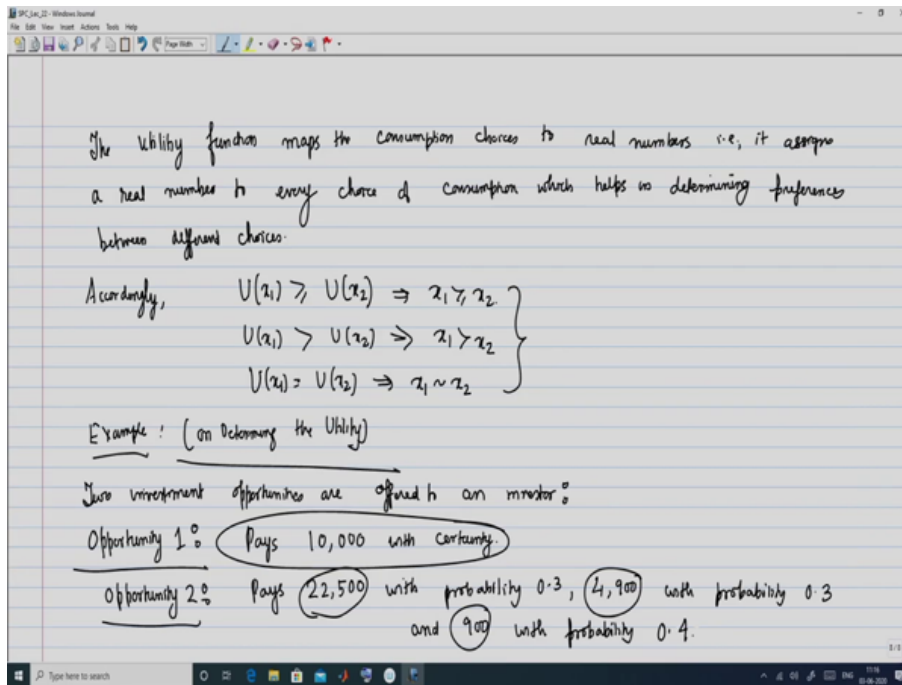 SPC_Lec_22 - Windows Journal
File Edit View Insert Actions Tools Help
Page Width
The Utility function maps the consumption choices to real numbers i.e, it assigns
a real number to every choice of consumption which helps in determining preferences
between different choices.
Accordingly, U(x₁) ≥ U(x₂) ⇒ x₁ ≽ x₂
U(x₁) > U(x₂) ⇒ x₁ ≻ x₂
U(x₁) = U(x₂) ⇒ x₁ ~ x₂
Example : (on Determining the Utility)
Two investment opportunities are offered to an investor :
Opportunity 1 : Pays 10,000 with certainty.
Opportunity 2 : Pays 22,500 with probability 0.3, 4,900 with probability 0.3
and 900 with probability 0.4.
Type here to search
ENG
11:16
03-06-2020